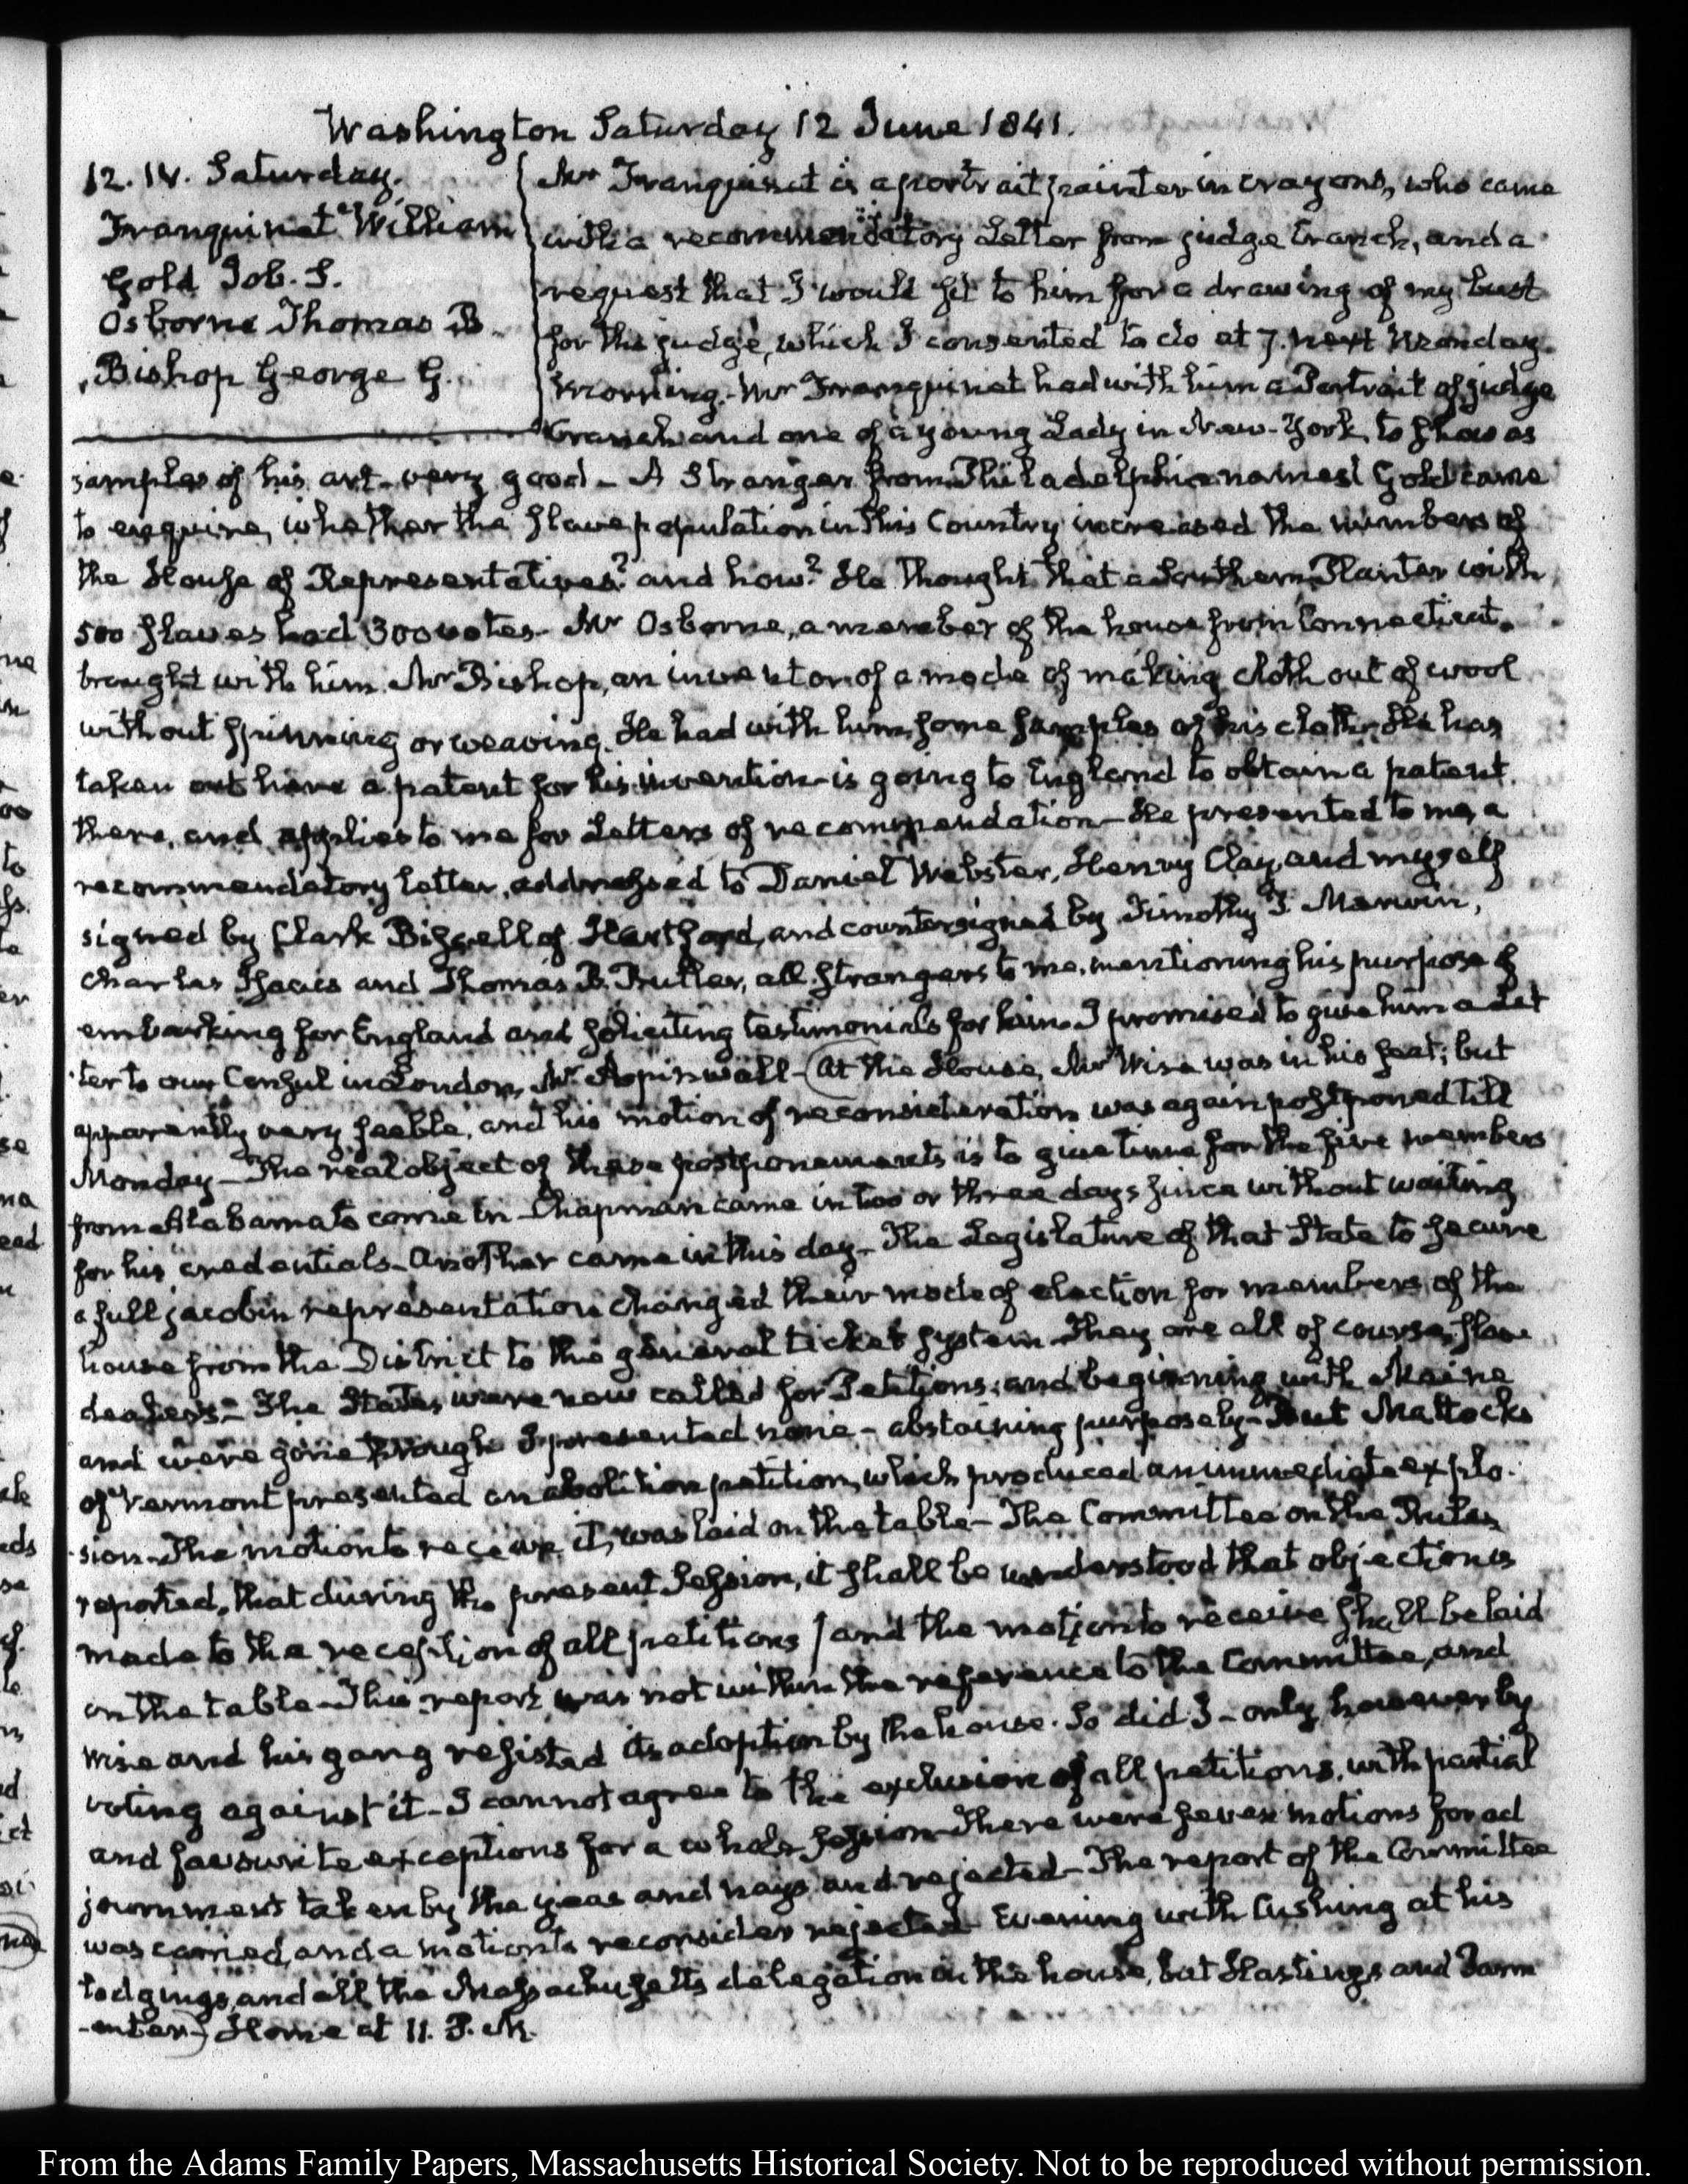 Washington Saturday 12 June 1841.
12. IV. Saturday.
Franquinet William
Gold Job. S.
Osborne Thomas B.
Bishop George G.
Mr Franquinet is a portrait painter in crayons, who came
with a recommendatory Letter from judge Cranch, and a
request that I would sit to him for a drawing of my bust
for the judge, which I consented to do at 7. next Monday
Morning. Mr Franquinet had with him a Portrait of judge
Cranch and one of a young Lady in New-York, to show as
samples of his art – very good – A Stranger from Philadelphia named Gold came
to enquire, whether the slave population in this Country increased the numbers of
the House of Representatives? and how? He thought that a Southern Planter with
500 slaves had 300 votes – Mr Osborne, a member of the house from Connecticut,
brought with him Mr Bishop, an inventor of a mode of making cloth out of wool
without spinning or weaving. He had with him some samples of his cloth. He has
taken out here a patent for his invention – is going to England to obtain a patent
there, and applies to me for Letters of recommendation – He presented to me, a
recommendatory letter, addressed to Daniel Webster, Henry Clay, and myself
signed by Clark Bissell of Hartford, and countersigned by Timothy T. Merwin,
Charles and Thomas B. Butler, all strangers to me, mentioning his purpose of
embarking for England and soliciting testimonials for him. I promised to give him a Let
ter to our Consul in London, Mr Aspinwall – At the House, Mr Wise was in his seat; but
apparently very feeble, and his motion of reconsideration was again postponed till
Monday – The real object of these postponements is to give time for the five members
from Alabama to come in – Chapman came in two or three days since without waiting
for his credentials – Another came in this day – The Legislature of that State to secure
a full jacobin representation changed their mode of election for members of the
house from the District to the general ticket system – They are all of course, slave
dealers – The States were now called for Petitions; and beginning with Maine
and were gone through I presented none – abstaining purposely – But Mattocks
of Vermont presented an abolition petition, which produced an immediate explo-
sion – The motion to receive it, was laid on the table – The Committee on the Rules
reported, that during the present Session, it shall be understood that objection is
made to the reception of all petitions / and the motion to receive shall be laid
on the table – This report was not within the reference to the Committee, and
Wise and his gang resisted its adoption by the house. So did I – only, however, by
voting against it – I cannot agree to the exclusion of all petitions, with partial
and favourite exceptions for a whole Session – There were seven motions for ad
journment taken by the yeas and nays and rejected – The report of the Committee
was carried, and a motion to reconsider rejected – Evening with Cushing at his
lodgings, and all the Massachusetts delegation in the house, but Hastings and Parm
-enter – Home at 11. P.M.
From the Adams Family Papers, Massachusetts Historical Society. Not to be reproduced without permission.